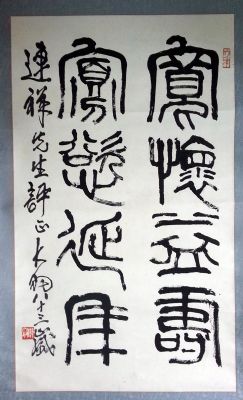 寬懷益壽
寡慾延年
連祥先生評正大羽八十三歲